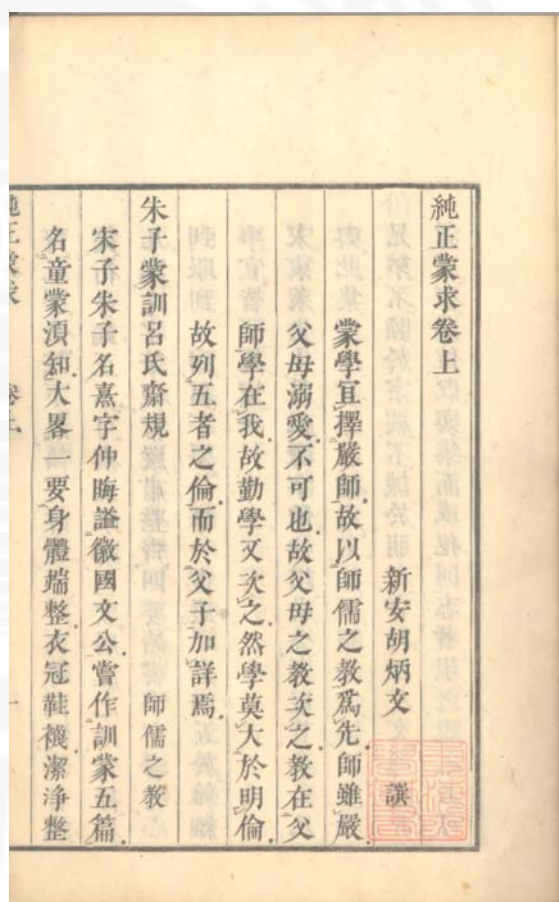 純正蒙求卷上
新安胡炳文 譔
蒙學宜擇嚴師故以師儒之教爲先師雖嚴
父母溺愛不可也故父母之教次之教在父
師學在我故勤學又次之然學莫大於明倫
故列五者之倫而於父子加詳焉
朱子蒙訓呂氏齋規 師儒之教
宋子朱子名熹字仲晦諡徽國文公嘗作訓蒙五篇
名童蒙湏知大畧一要身體端整衣冠鞋襪潔淨整
純正蒙求 卷上 一